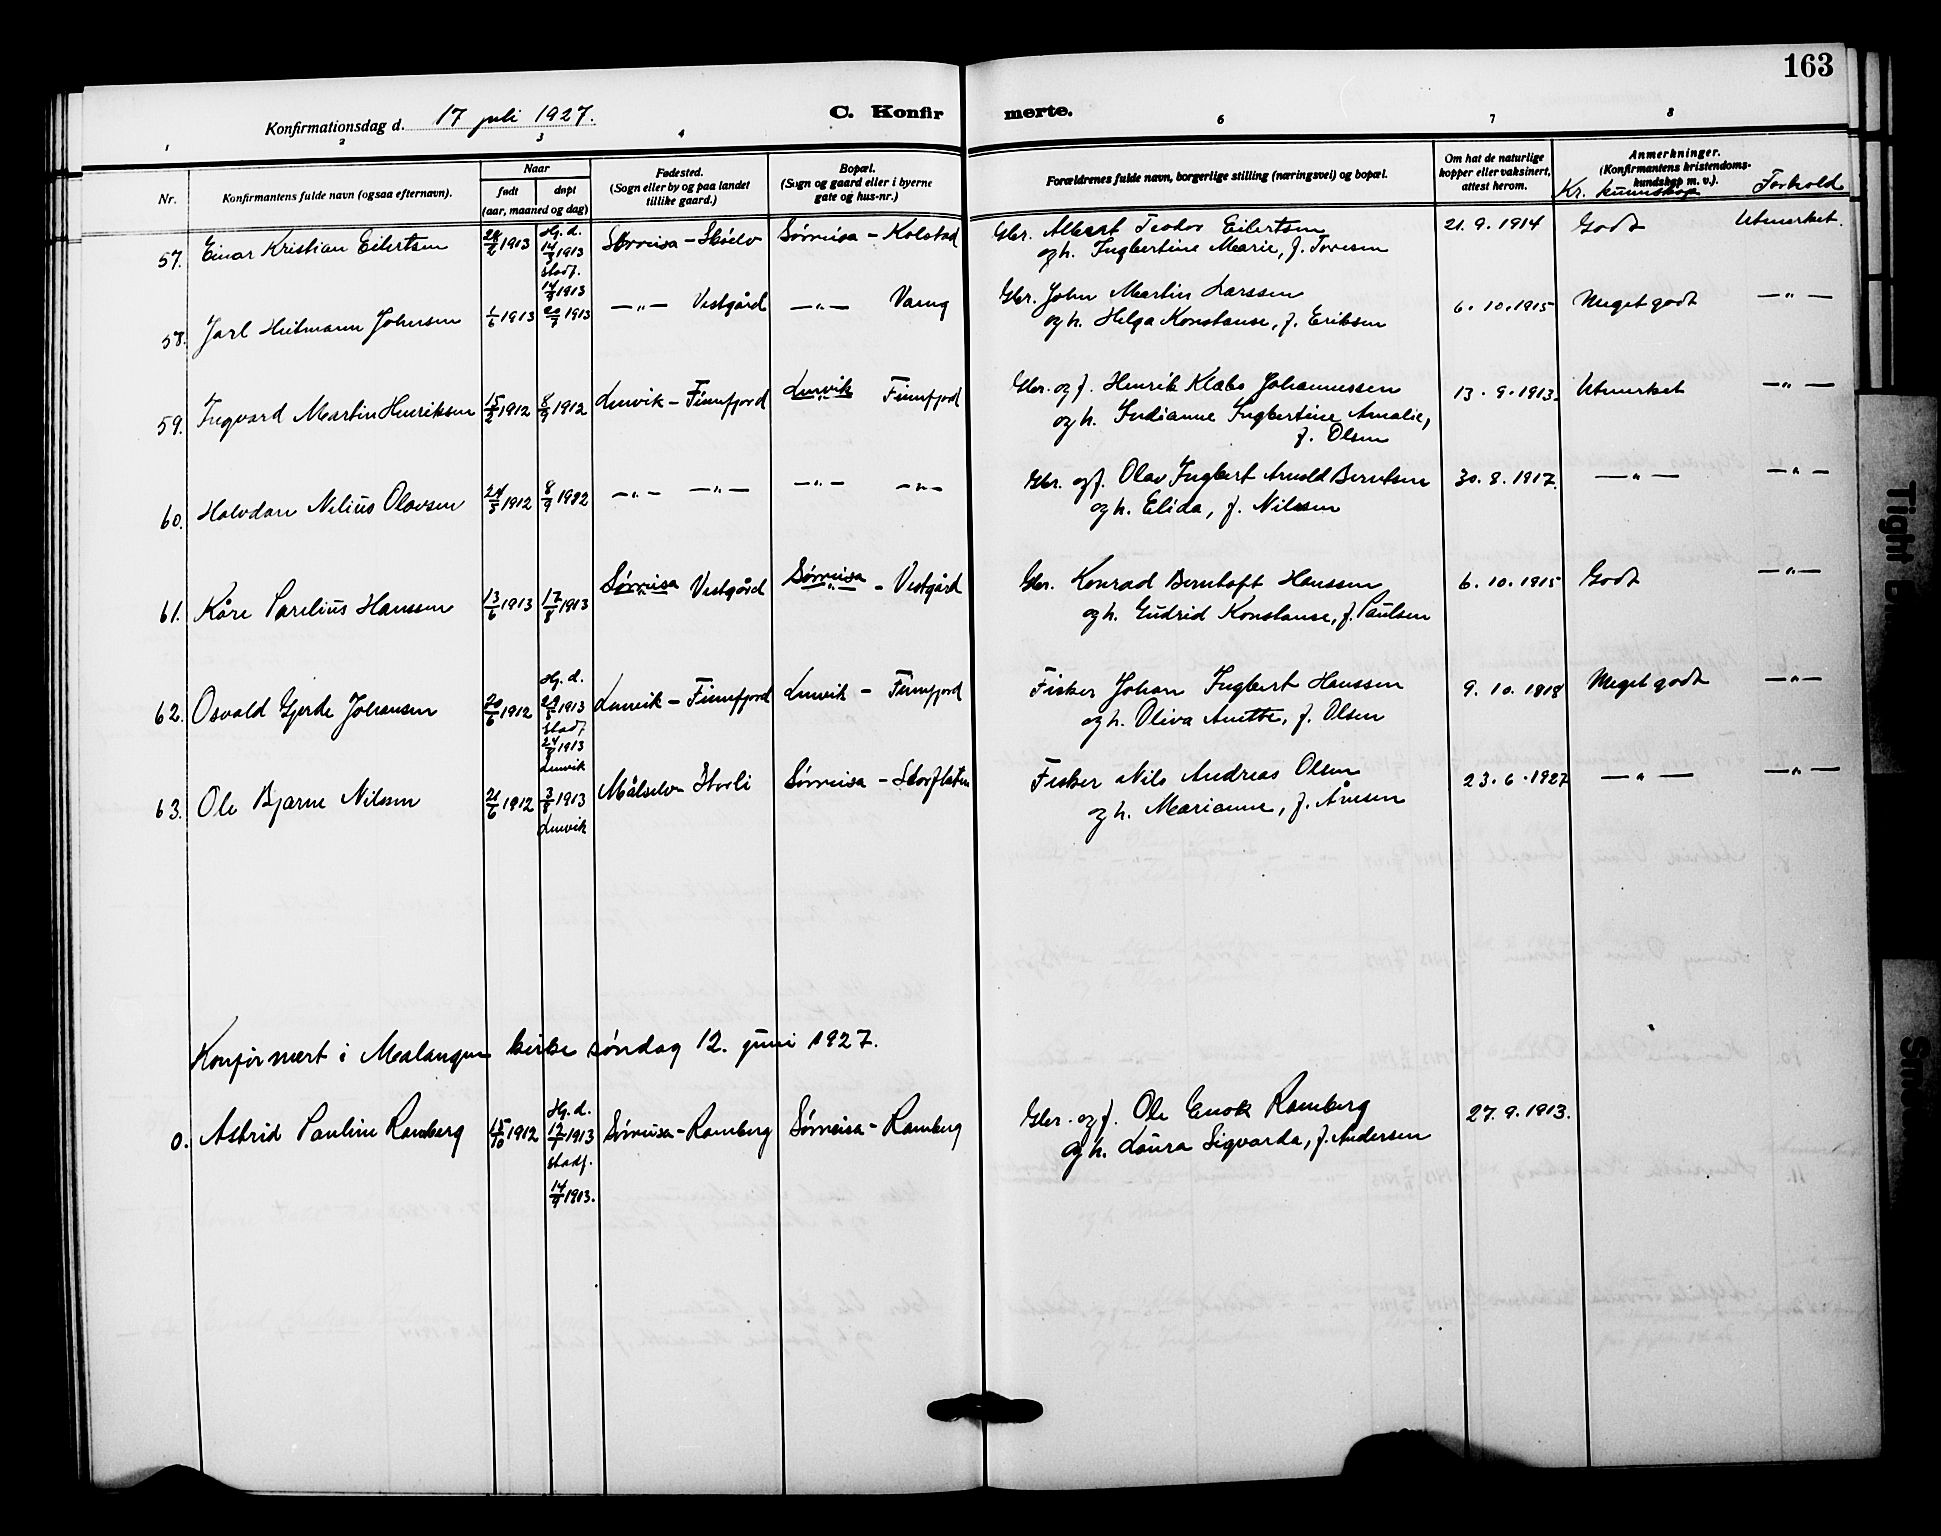 163
Konfirmationsdag d. 17 juli 1927.
C. Konfirmerte.
1 2 3 4 6 7 8
Nr.
Konfirmantens fulde navn (ogsaa efternavn).
Naar
født
døpt
(aar, maaned og dag)
Fødested.
(Sogn eller by og paa landet
tillike gaard.)
Bopæl.
(Sogn og gaard eller i byerne
gate og hus-nr.)
Forældrenes fulde navn, borgerlige stilling (næringsvei) og bopæl.
Om hat de naturlige
kopper eller vaksinert,
attest herom.
Anmerkninger.
(Konfirmantens kristendoms-
kundskap m. v.).
Kr. kunnskap Forhold
57. Einar Kristian Eilertsen 1913 Hj. d. 14/3 1913 stadf. 14/9 1913 Sørreisa - Skøelv Sørreisa - Kolstad Gbr. Albert Teodor Eilertsen 21. 9. 1914 Godt Utmerket.
og h. Ingbertine Marie, f. Toresen
58. Jarl Hitmann Johnsen 1/6 1913 20/7 1913 —"— Vestgård —"— Vang Gbr. John Martin Larssen 6. 10. 1915 Meget godt —"—
og h. Helga Konstanse, f. Eriksen
59. Ingvard Martin Henriksen 15/2 1912 8/9 1912 Lenvik - Finnfjord Lenvik Finnfjord Gbr. og f. Henrik Klæbo Johannessen 13. 9. 1913. Utmerket —"—
og h. Indianne Ingbertine Amalie,
f. Olsen
60. Halvdan Nilius Olavsen 24/5 1912 8/9 1912 —"— —"— —"— —"— Gbr. og f. Olav Ingbert Arnold Berntsen 30. 8. 1917. —"— —"—
og h. Elida, f. Nilssen
61. Kåre Parelius Hanssen 13/6 1913 17/8 1913 Sørreisa Vestgård Sørreisa - Vestgård Gbr. Konrad Berntoft Hanssen 6. 10. 1915 Godt —"—
og h. Gudrid Konstanse, f. Paulsen
62. Osvald Gjerde Johansen 20/6 1912 Hj. d. 1913 stadf. 1913 Lenvik Lenvik - Finnfjord Lenvik - Finnfjord Fisker Johan Ingbert Hanssen 9. 10. 1918 Meget godt —"—
og h. Oliva Anette, f. Olsen
63. Ole Bjarne Nilssen 21/6 1912 3/8 1913 Lenvik Målselv Storli Sørreisa - Storflaten Fisker Nils Andreas Olsen 23. 6. 1927 —"— —"—
og h. Marianne, f. Årnesen
Konfirmert i Malangen kirke søndag 12. juni 1927.
0. Astrid Pauline Ramberg 15/10 1912 Hj. d. 1913 stadf. 14/9 1913. Sørreisa - Ramberg Sørreisa - Ramberg Gbr. og f. Ole Enok Ramberg 27. 9. 1913.
og h. Laura Sigvarda, f. Andersen